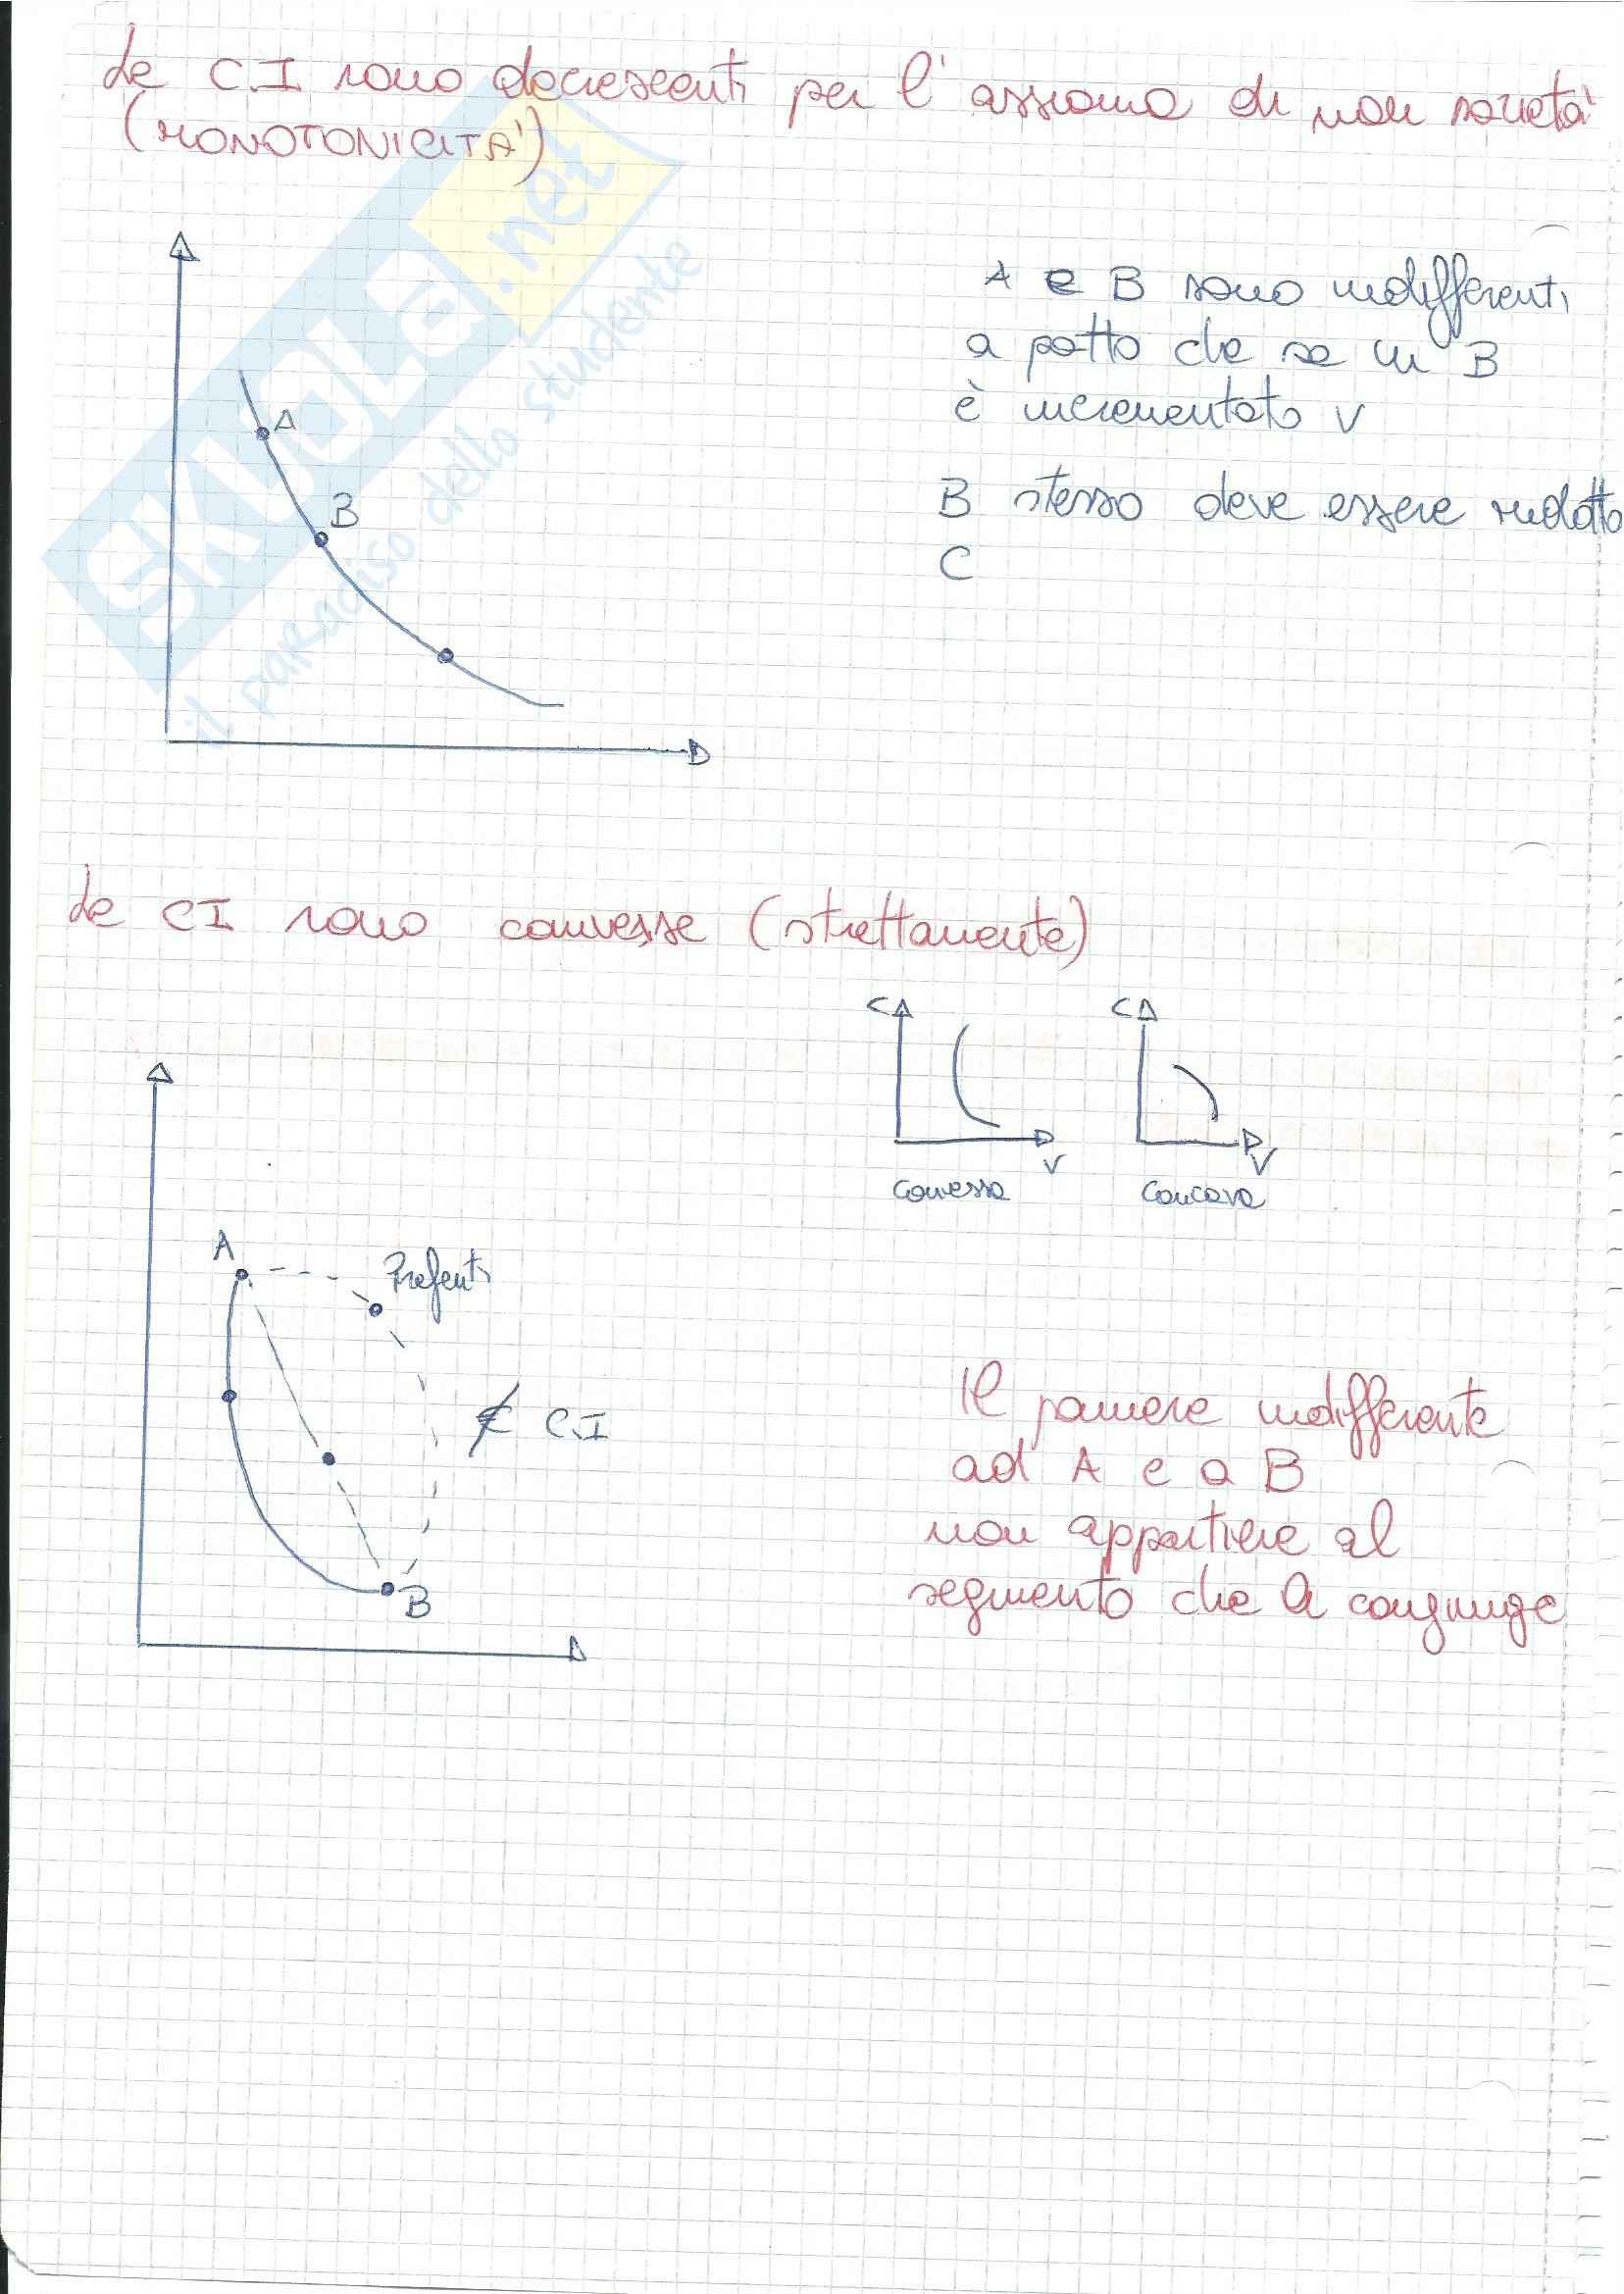 Le C.I sono decrescenti per l'assioma di non sazietà
(MONOTONICITA')
A e B sono indifferenti
a patto che se in B
è incrementato V
A
B
B stesso deve essere ridotto
C
SKUOLA.net
il paradiso dello studente
Le CI sono convesse (strettamente)
C
C
V
V
Convessa
Concava
A
Preferiti
∉ C.I
B
Il paniere indifferente
ad A e a B
non appartiene al
segmento che li congiunge